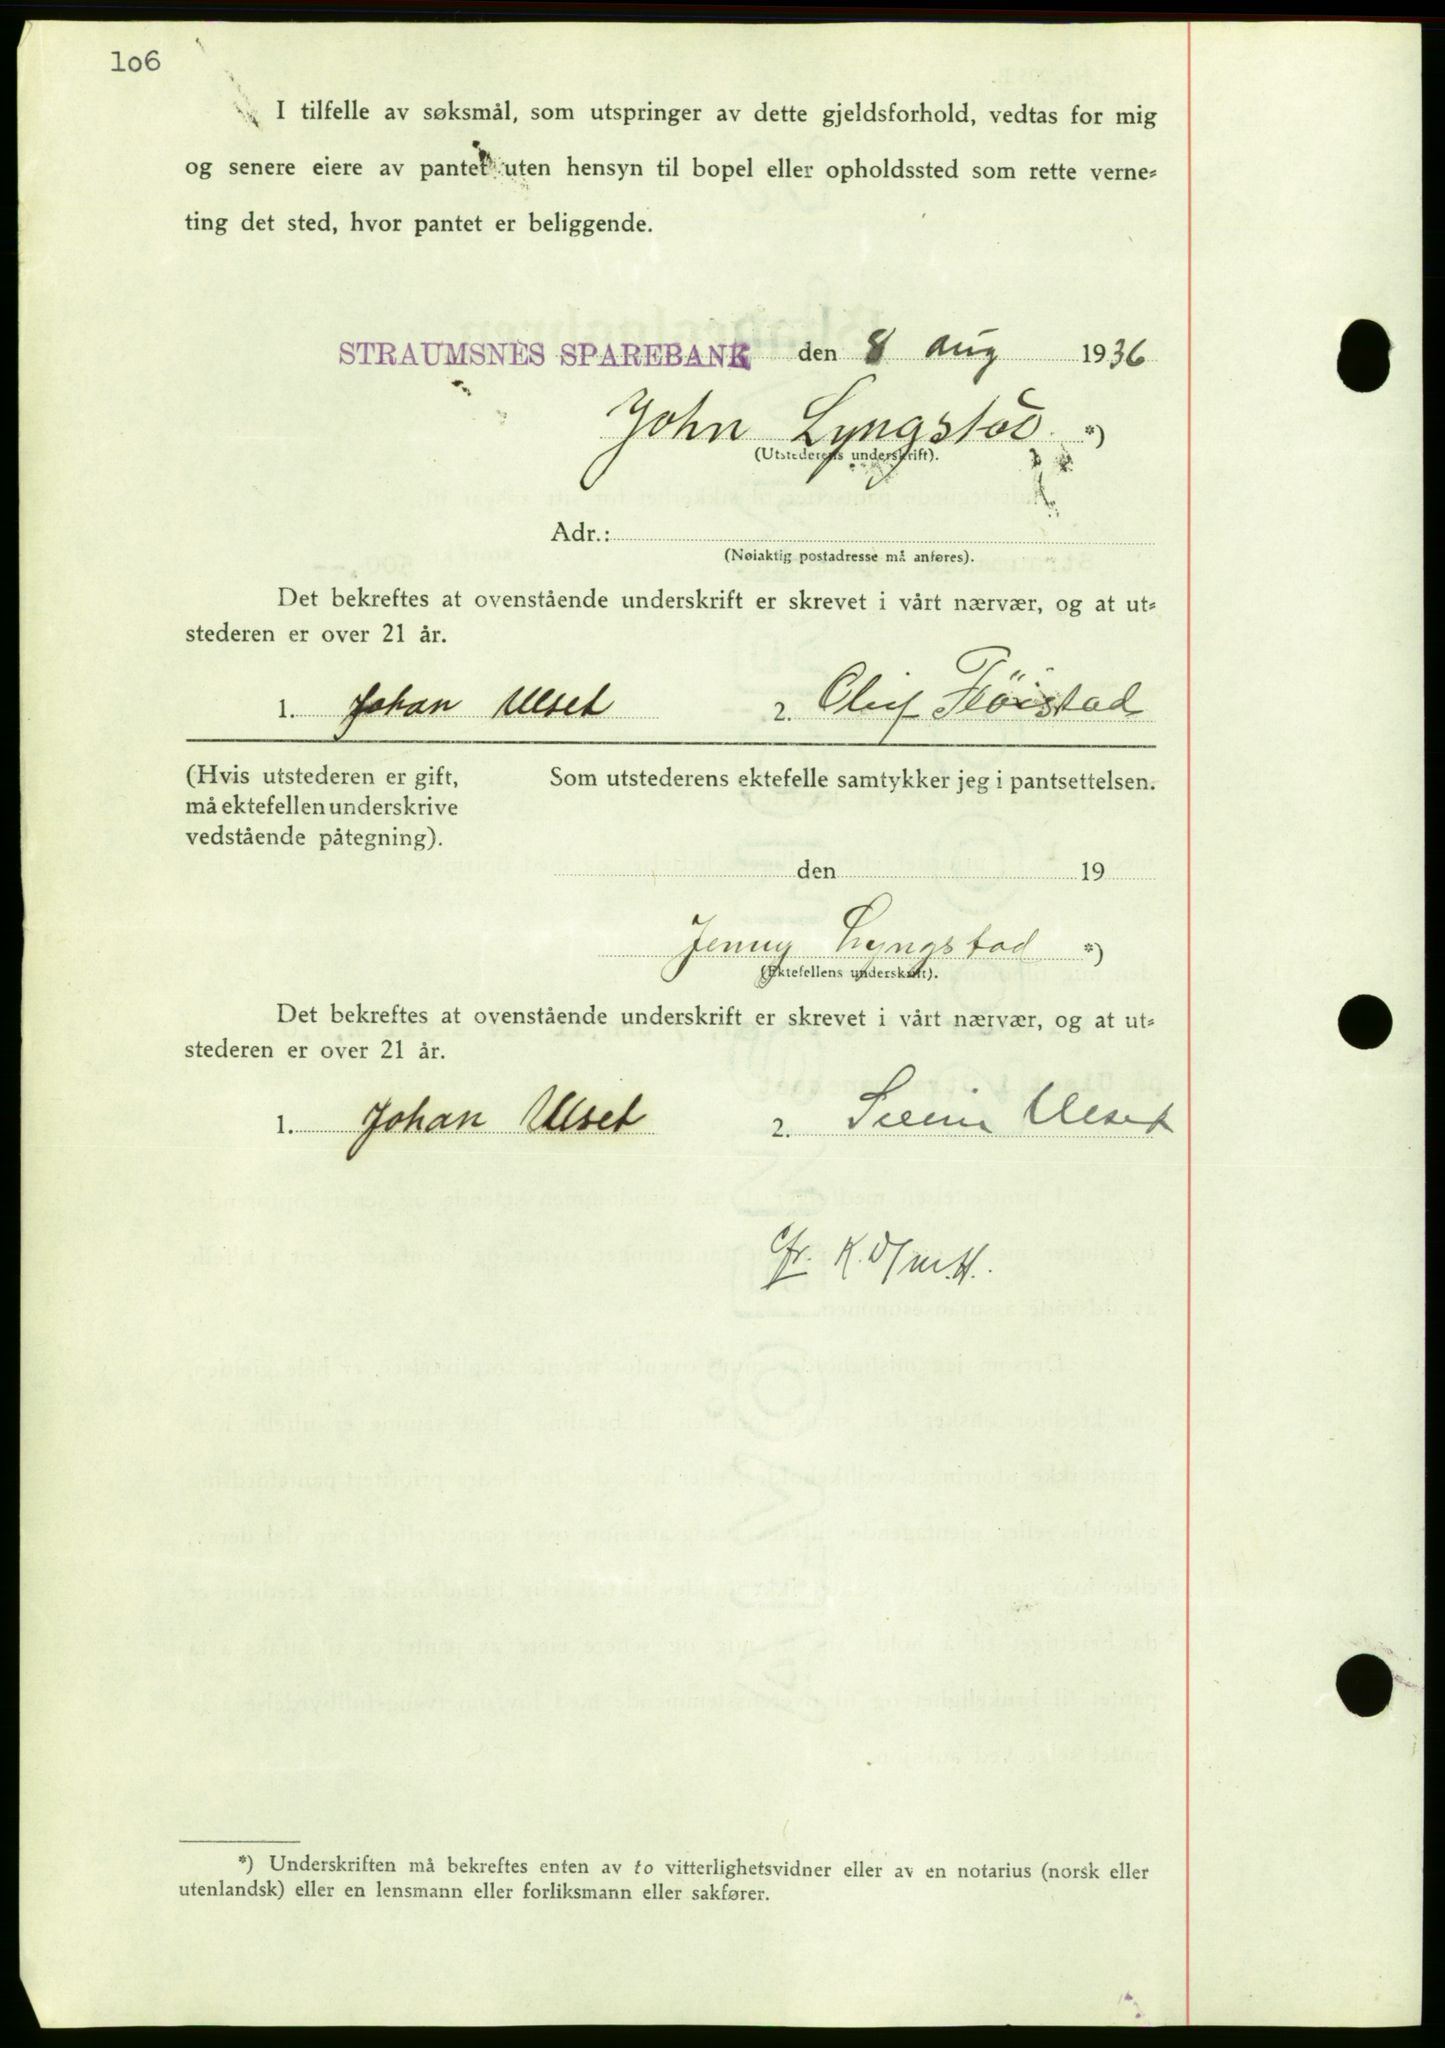 106
I tilfelle av søksmål, som utspringer av dette gjeldsforhold, vedtas for mig
og senere eiere av pantet uten hensyn til bopel eller opholdssted som rette verne=
ting det sted, hvor pantet er beliggende.
STRAUMSNES SPAREBANK den 8 aug 1936
John Lyngstad *)
(Utstederens underskrift).
Adr.:
(Nøiaktig postadresse må anføres).
Det bekreftes at ovenstående underskrift er skrevet i vårt nærvær, og at ut=
stederen er over 21 år.
1. Johan Ulset 2. Oluf Flöistad
(Hvis utstederen er gift,
må ektefellen underskrive
vedstående påtegning).
Som utstederens ektefelle samtykker jeg i pantsettelsen.
den 19
Jenny Lyngstad *)
(Ektefellens underskrift).
Det bekreftes at ovenstående underskrift er skrevet i vårt nærvær, og at ut=
stederen er over 21 år.
1. Johan Ulset 2. Ulset
*) Underskriften må bekreftes enten av to vitterlighetsvidner eller av en notarius (norsk eller
utenlandsk) eller en lensmann eller forliksmann eller sakfører.